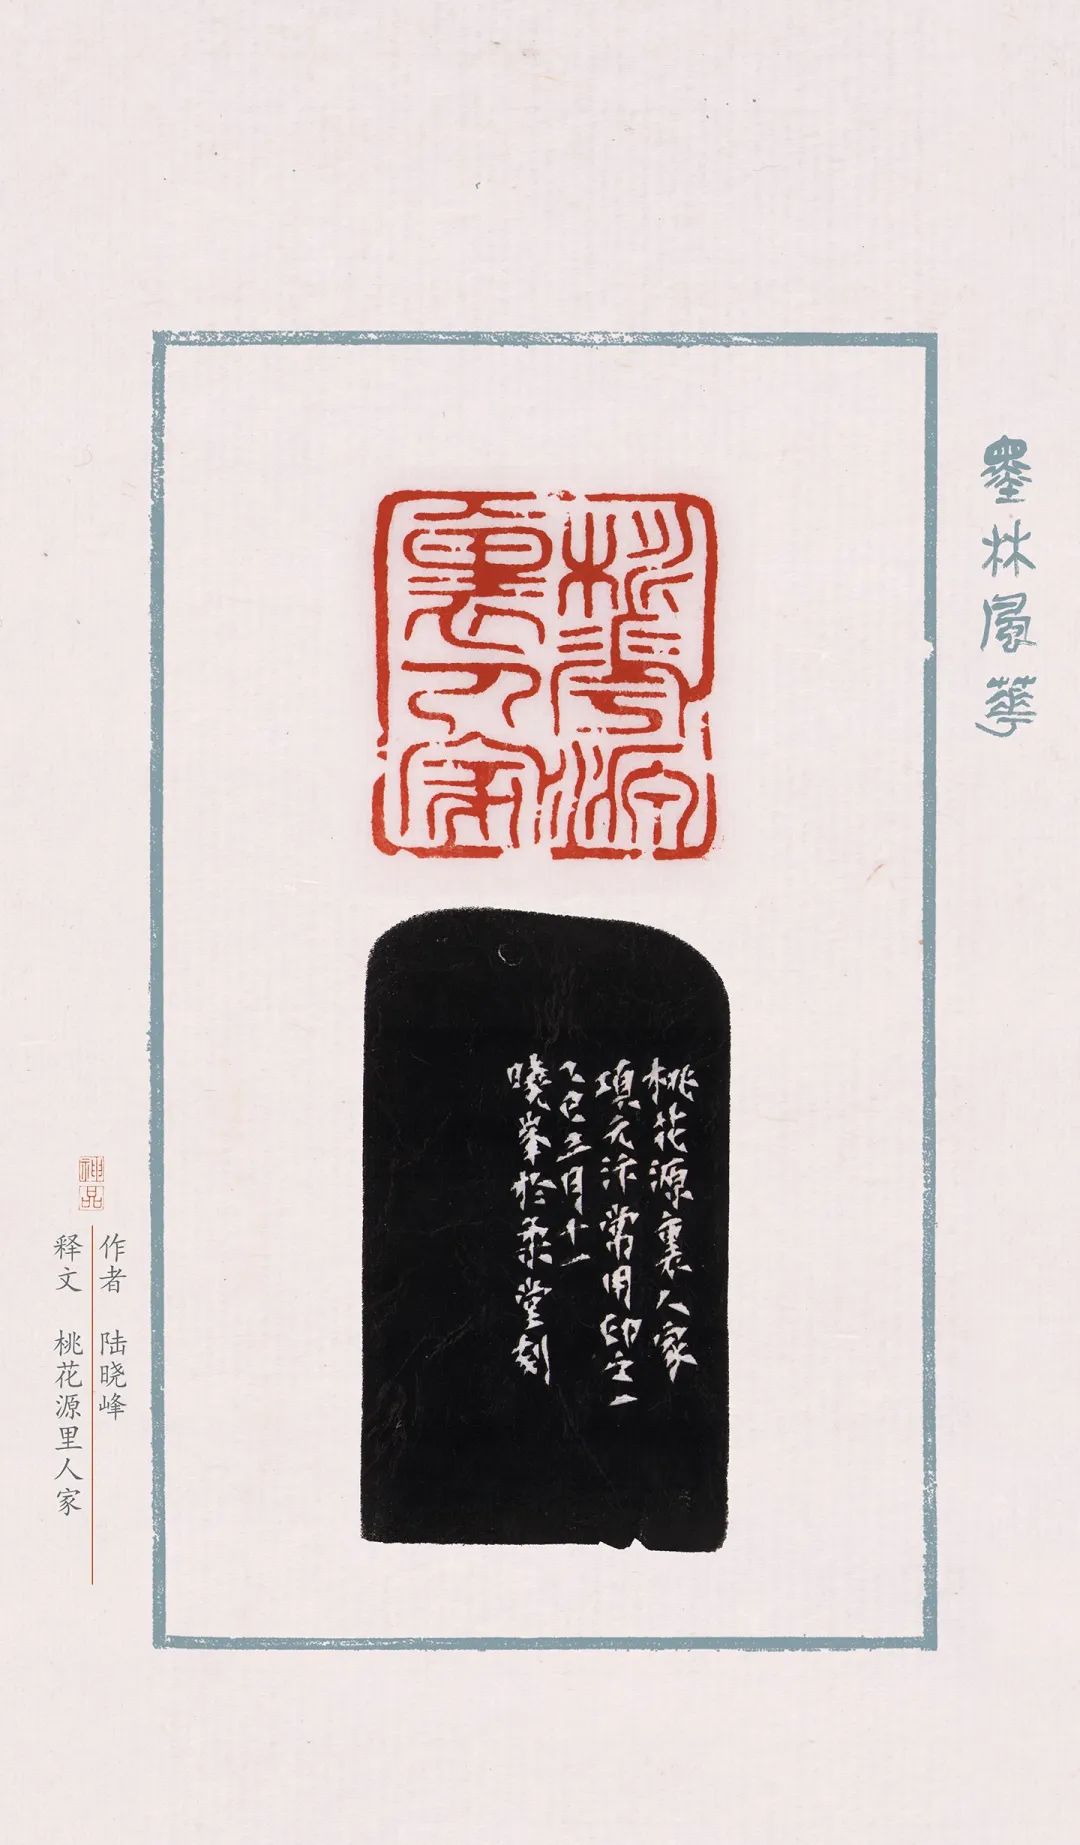 墨林風華
桃花源裏人家
桃花源裏人家
項元汴常用印之一
乙巳三月十一
曉峯於柔堂刻
神品
作者 陆晓峰
释文 桃花源里人家